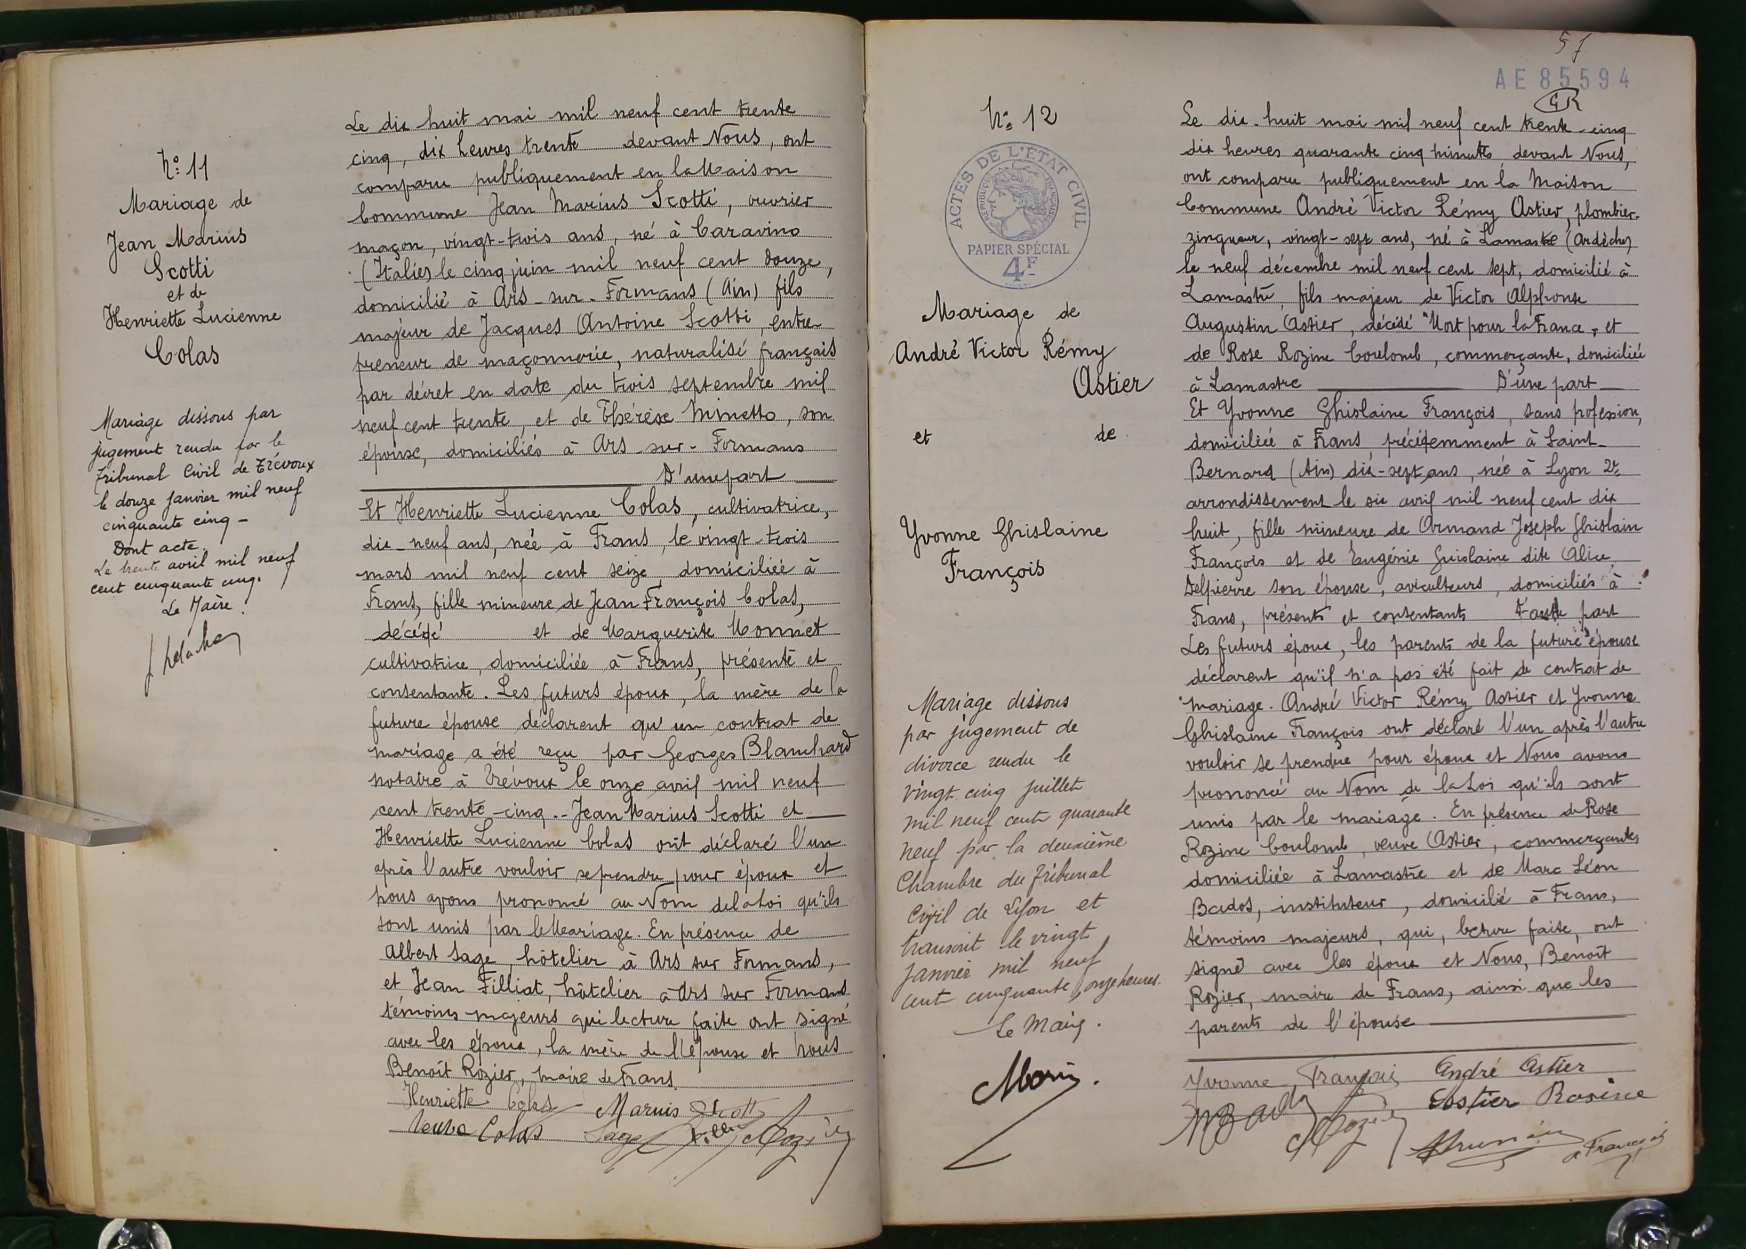 N° 11
Mariage de
Jean Marius
Scotti
et de
Henriette Lucienne
Colas
Mariage dissous par
jugement rendu par le
Tribunal Civil de Trévoux
le douze janvier mil neuf
cinquante cinq -
Dont acte
Le trente avril mil neuf
cent cinquante cinq.
Le Maire :
Le dix huit mai mil neuf cent trente
cinq, dix heures trente devant Nous, ont
comparu publiquement en la Maison
Commune Jean Marius Scotti, ouvrier
maçon, vingt-trois ans, né à Caravino
(Italie) le cinq juin mil neuf cent douze,
domicilié à Ars-sur-Formans (Ain) fils
majeur de Jacques Antoine Scotti, entre-
preneur de maçonnerie, naturalisé français
par décret en date du trois septembre mil
neuf cent trente, et de Thérèse Minetto, son
épouse, domiciliés à Ars-sur-Formans
D'une part
Et Henriette Lucienne Colas, cultivatrice,
dix-neuf ans, née à Frans, le vingt-trois
mars mil neuf cent seize, domiciliée à
Frans, fille mineure de Jean François Colas,
décédé et de Marguerite Monnet
cultivatrice, domiciliée à Frans, présente et
consentante. Les futurs époux, la mère de la
future épouse déclarent qu'un contrat de
mariage a été reçu par Georges Blanchard
notaire à Trévoux le onze avril mil neuf
cent trente-cinq.- Jean Marius Scotti et
Henriette Lucienne Colas ont déclaré l'un
après l'autre vouloir se prendre pour époux et
nous avons prononcé au Nom de la Loi qu'ils
sont unis par le Mariage. En présence de
Albert Sage, hôtelier à Ars sur Formans,
et Jean Filliat, hôtelier à Ars sur Formans
témoins majeurs qui lecture faite ont signé
avec les époux, la mère de l'épouse et Nous
Benoît Rozier, maire de Frans.
Henriette Colas Marius Scotti
Veuve Colas Sage Rozier
57
AE 85594
GR
N° 12
ACTES DE L'ETAT CIVIL
PAPIER SPÉCIAL
4F
Mariage de
André Victor Rémy
Astier
et de
Yvonne Ghislaine
François
Mariage dissous
par jugement de
divorce rendu le
vingt cinq juillet
mil neuf cent quarante
neuf par la deuxième
Chambre du Tribunal
Civil de Lyon et
transcrit le vingt
janvier mil neuf
cent cinquante, onze heures.
Le Maire.
Le dix-huit mai mil neuf cent trente-cinq
dix heures quarante cinq minutes, devant Nous,
ont comparu publiquement en la Maison
Commune André Victor Rémy Astier, plombier-
zingueur, vingt-sept ans, né à Lamastre (Ardèche)
le neuf décembre mil neuf cent sept, domicilié à
Lamastre, fils majeur de Victor Alphonse
Augustin Astier, décédé "Mort pour la France", et
de Rose Rozine Coulomb, commerçante, domiciliée
à Lamastre D'une part
Et Yvonne Ghislaine François, sans profession,
domiciliée à Frans, précédemment à Saint-
Bernard (Ain) dix-sept ans, née à Lyon 2e
arrondissement le six avril mil neuf cent dix
huit, fille mineure de Armand Joseph Ghislain
François et de Eugénie Guislaine dite Alice
Delpierre son épouse, aviculteurs, domiciliés à
Frans, présents et consentants D'autre part
Les futurs époux, les parents de la future épouse
déclarent qu'il n'a pas été fait de contrat de
mariage. André Victor Rémy Astier et Yvonne
Ghislaine François ont déclaré l'un après l'autre
vouloir se prendre pour époux et Nous avons
prononcé au Nom de la Loi qu'ils sont
unis par le mariage. En présence de Rose
Rozine Coulomb, veuve Astier, commerçante
domiciliée à Lamastre et de Marc Léon
Bados, instituteur, domicilié à Frans,
témoins majeurs, qui, lecture faite, ont
signé avec les époux et Nous, Benoît
Rozier, maire de Frans, ainsi que les
parents de l'épouse
Yvonne François André Astier
Astier Rosine
Rozier
a François